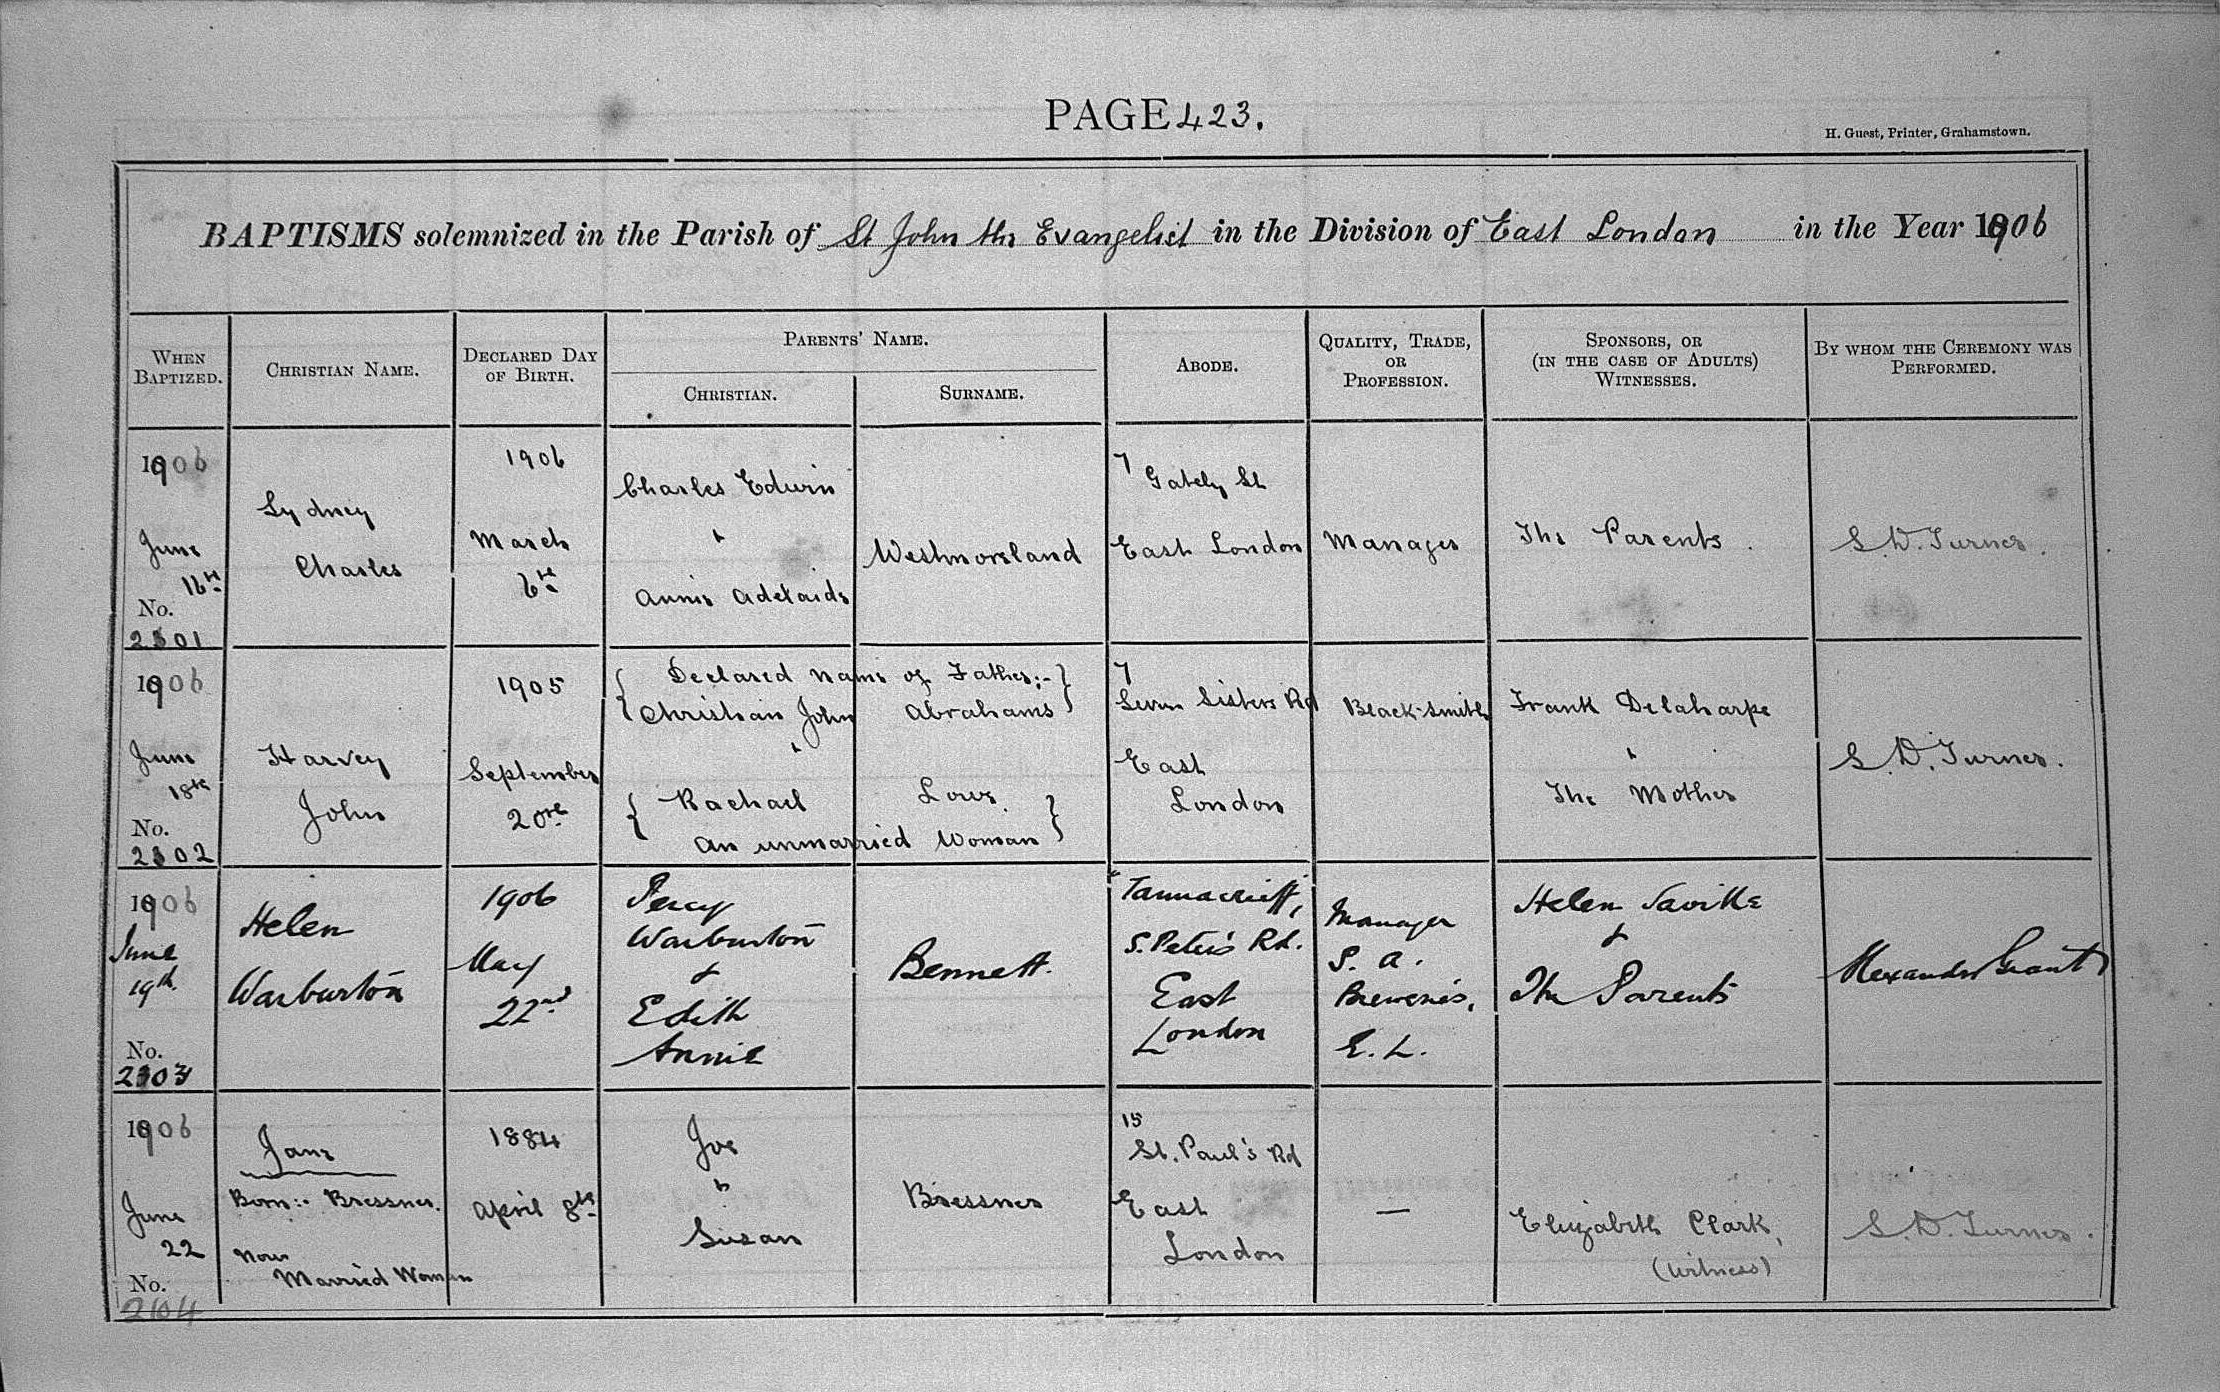 PAGE 423.
H. Guest, Printer, Grahamstown.
BAPTISMS solemnized in the Parish of St John the Evangelist in the Division of East London in the Year 1906
WHEN BAPTIZED.
CHRISTIAN NAME.
DECLARED DAY OF BIRTH.
PARENTS' NAME.
CHRISTIAN.
SURNAME.
ABODE.
QUALITY, TRADE, OR PROFESSION.
SPONSORS, OR (IN THE CASE OF ADULTS) WITNESSES.
BY WHOM THE CEREMONY WAS PERFORMED.
1906
June
16th
No.
2301
Sydney
Charles
1906
March
6th
Charles Edwin
&
Annie Adelaide
Westmoreland
7
Gately St
East London
Manager
The Parents.
S.D. Turner.
1906
June
18th
No.
2302
Harvey
John
1905
September
20th
{ Declared name of Father:- }
Christian John Abrahams
&
{ Rachael Lowe.
an unmarried Woman }
7
Seven Sisters Rd
East
London
Black-smith
Frank Delaharpe
&
The Mother
S.D. Turner.
1906
June
19th
No.
2303
Helen
Warburton
1906
May
22nd
Percy
Warburton
&
Edith
Annie
Bennett.
S. Peter's Rd.
East
London
Manager
S. A.
Breweries,
E. L.
Helen Saville
&
The Parents
Alexander Grant
1906
June
22
No.
Jane
Born:- Bressner.
Now
Married Woman
1884
April 8th
Joe
&
Susan
Bressner
15
St. Paul's Rd
East
London
—
Elizabeth Clark,
(witness)
S.D. Turner.